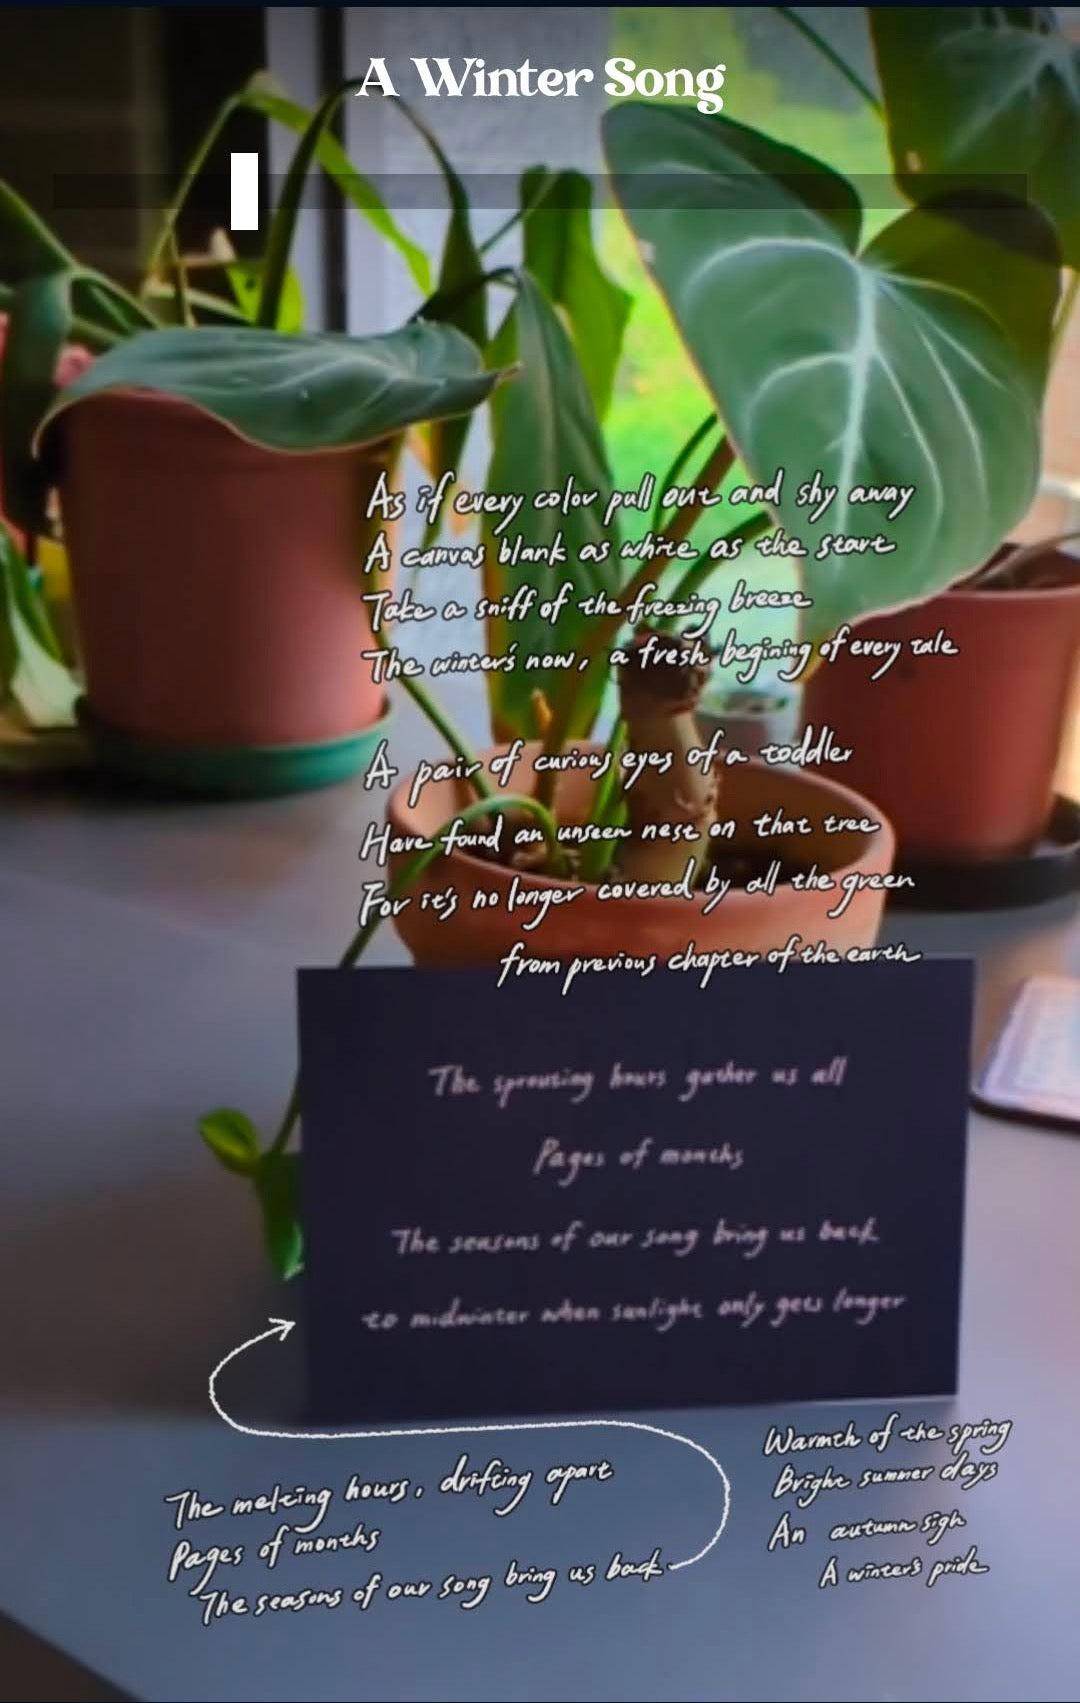 A Winter Song
As if every color pull out and shy away
A canvas blank as white as the start
Take a sniff of the freezing breeze
The winter's now, a fresh begining of every tale
A pair of curious eyes of a toddler
Have found an unseen nest on that tree
For it's no longer covered by all the green
from previous chapter of the earth
The sprouting hours gather us all
Pages of months
The seasons of our song bring us back
to midwinter when sunlight only gets longer
The melting hours, drifting apart
Pages of months
The seasons of our song bring us back
Warmth of the spring
Bright summer days
An autumn sigh
A winter's pride